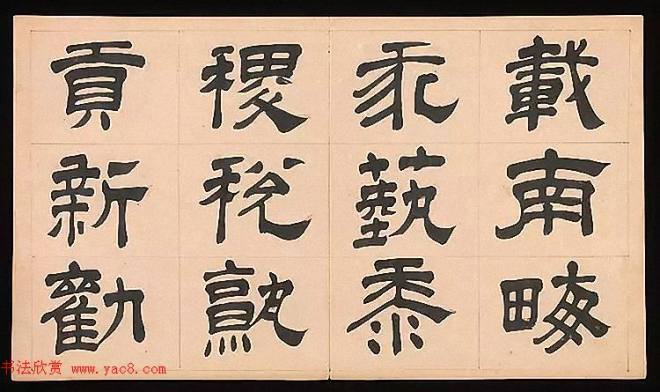 載南畮
我蓺黍
稷稅熟
貢新勸
书法欣赏 www.yac8.com